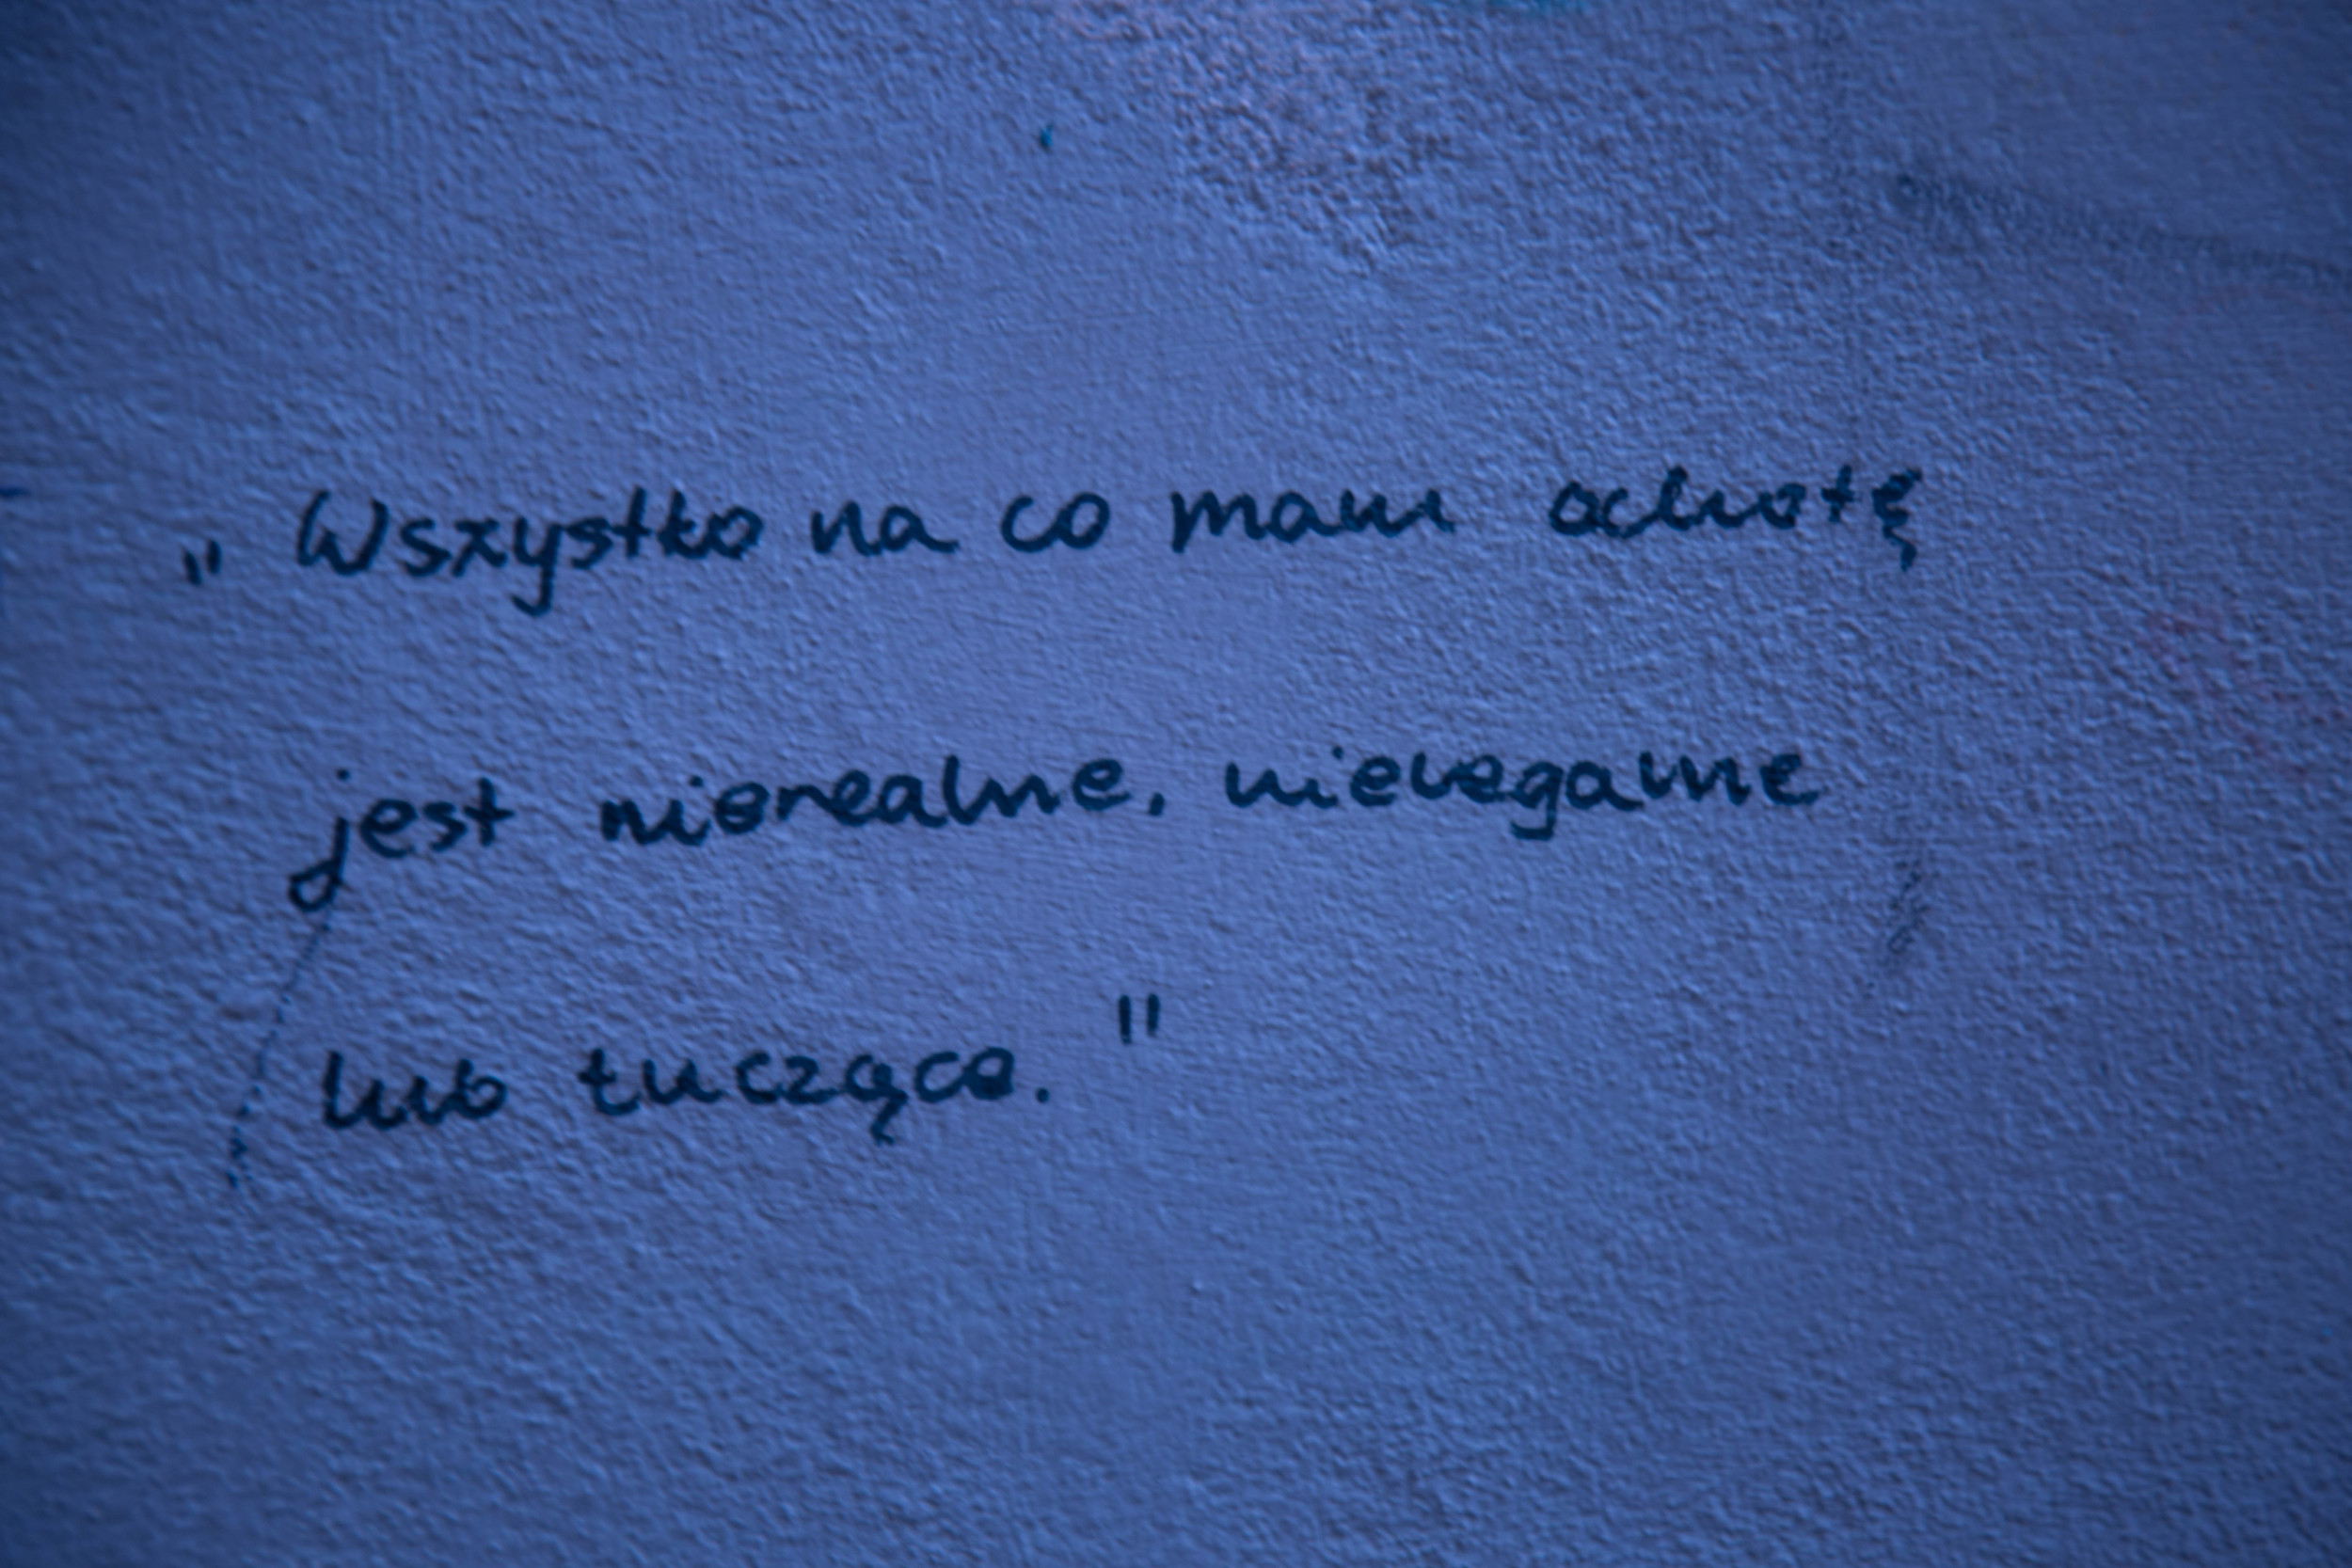 „Wszystko na co mam ochotę
jest nierealne, nielegalne
lub tuczące."